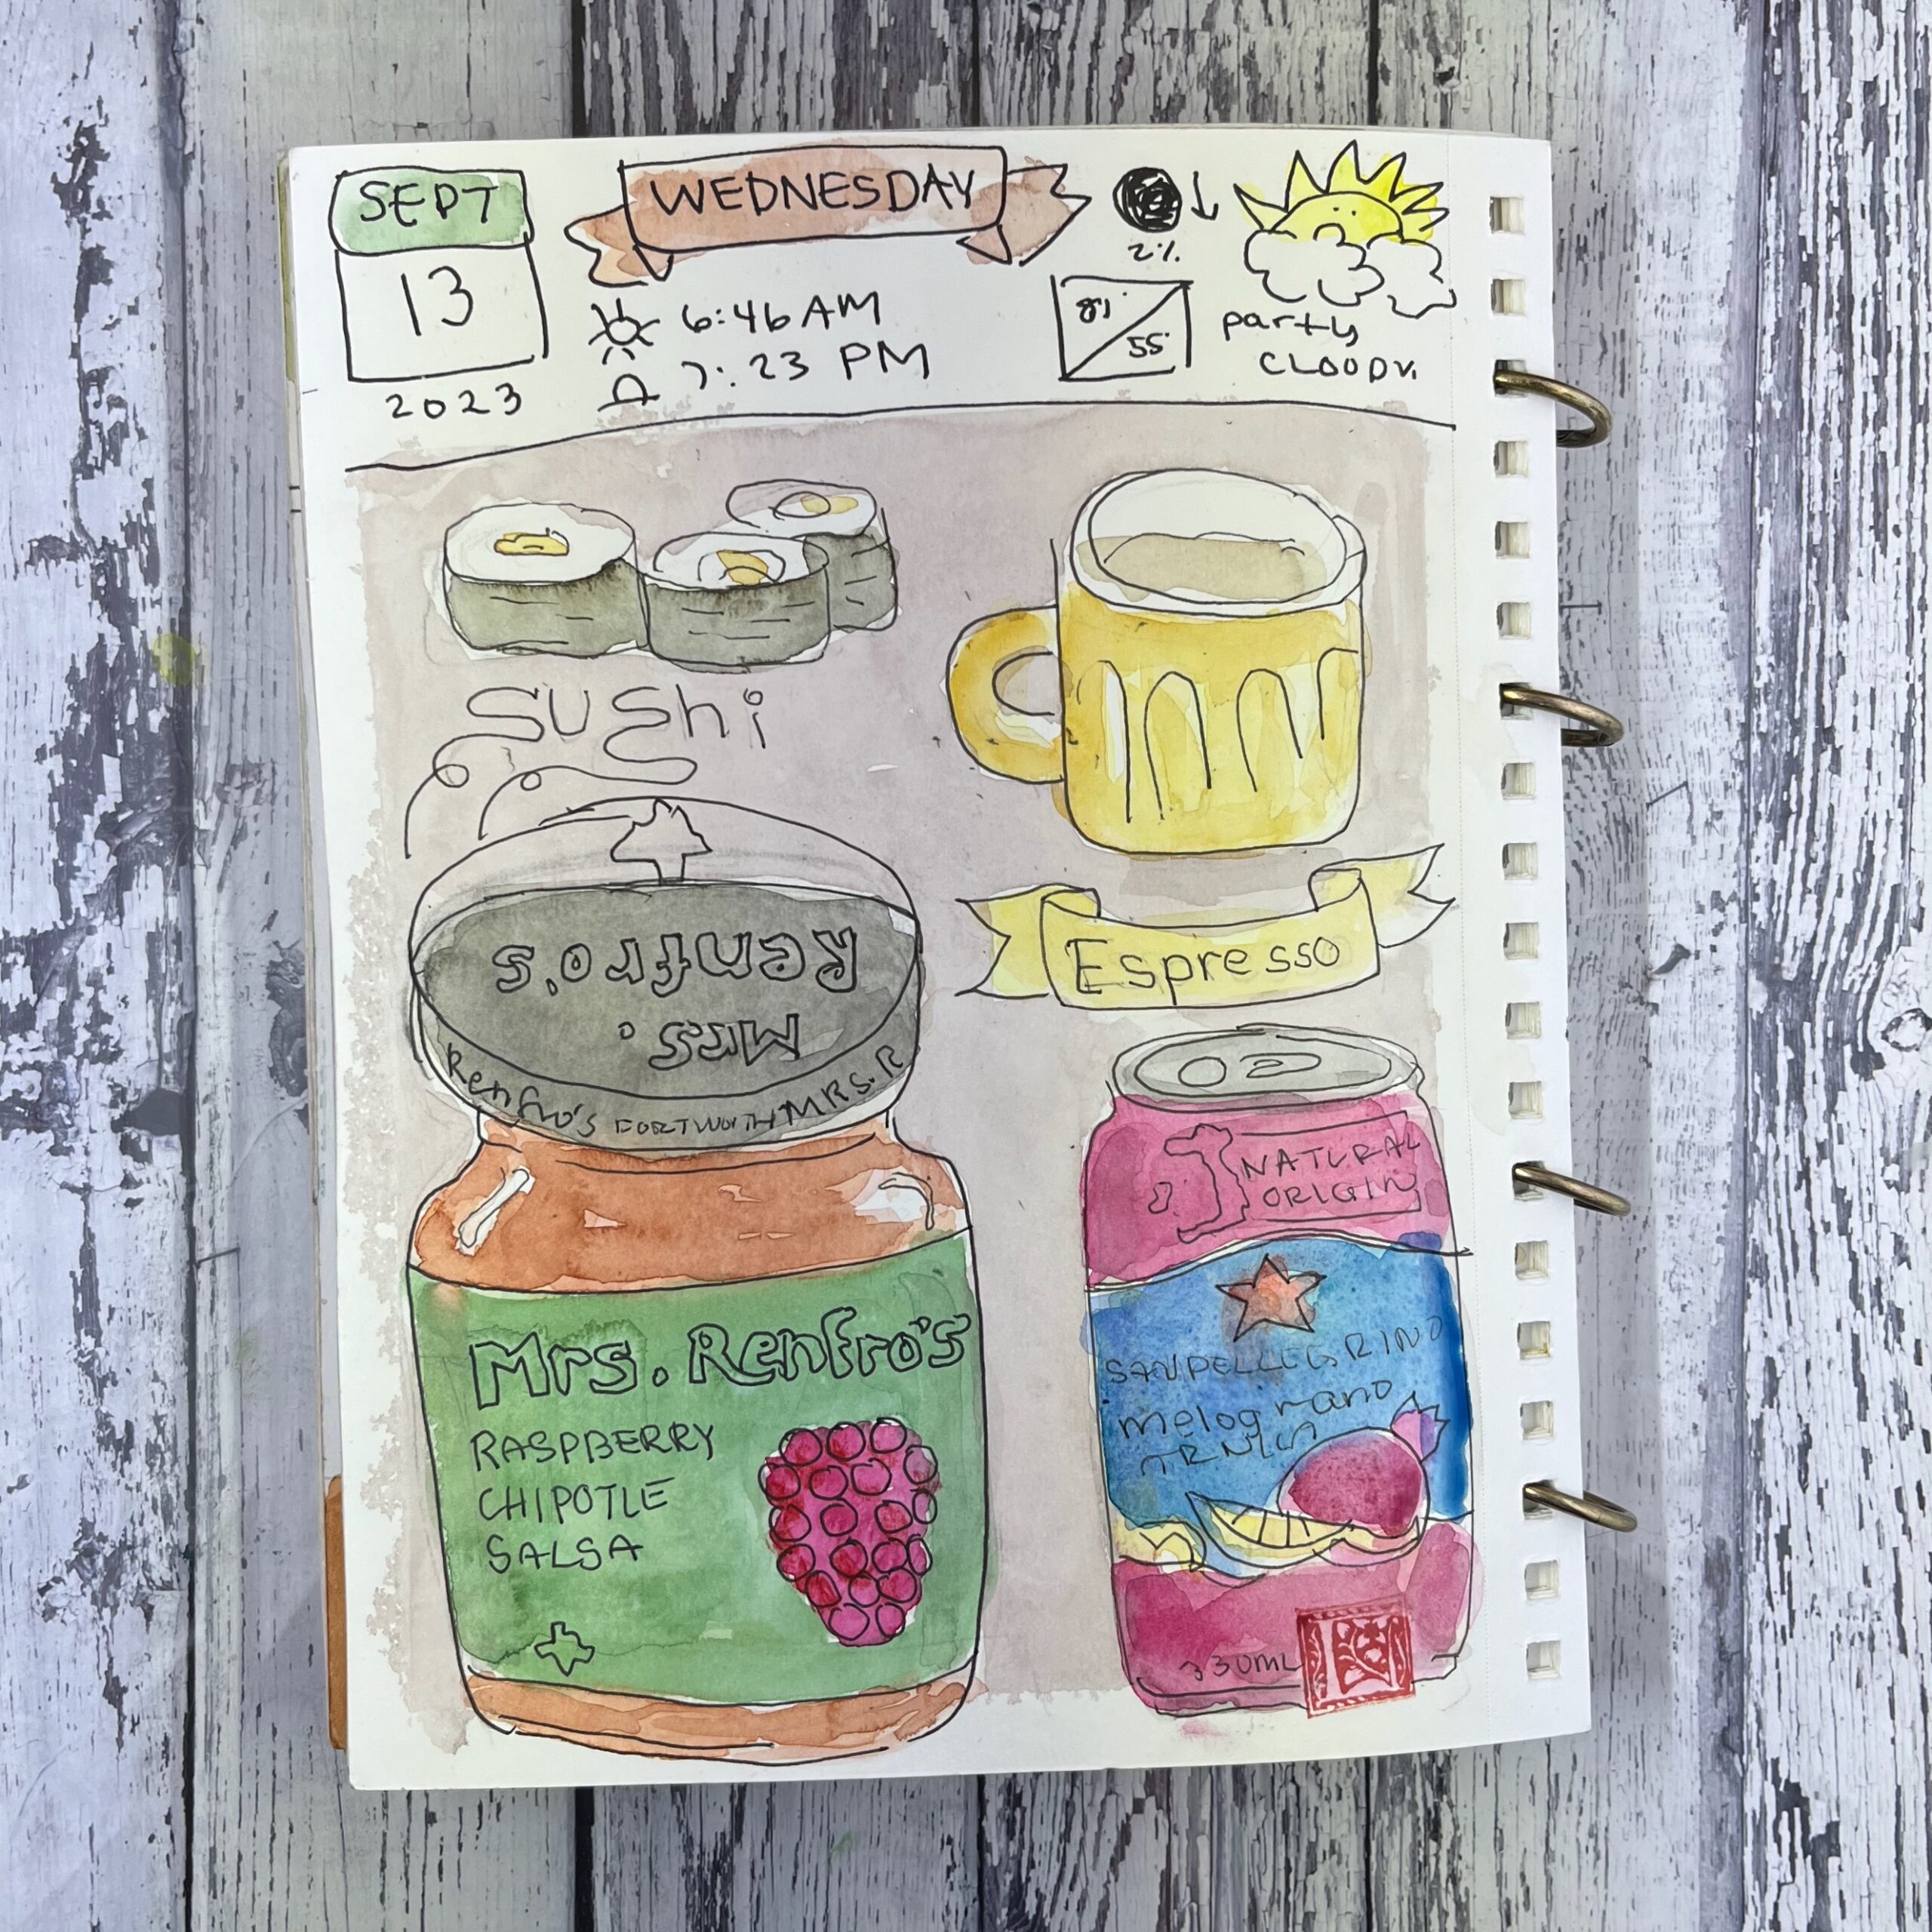 SEPT
13
2023
WEDNESDAY
6:46 AM
7:23 PM
2%
81
55
party
CLOODY.
sushi
Espresso
Mrs.
Renfro's
Renfro's FORTWORTH MRS. R
Mrs. Renfro's
RASPBERRY
CHIPOTLE
SALSA
NATURAL
ORIGIN
SANPELLEGRINO
melograno
330ML